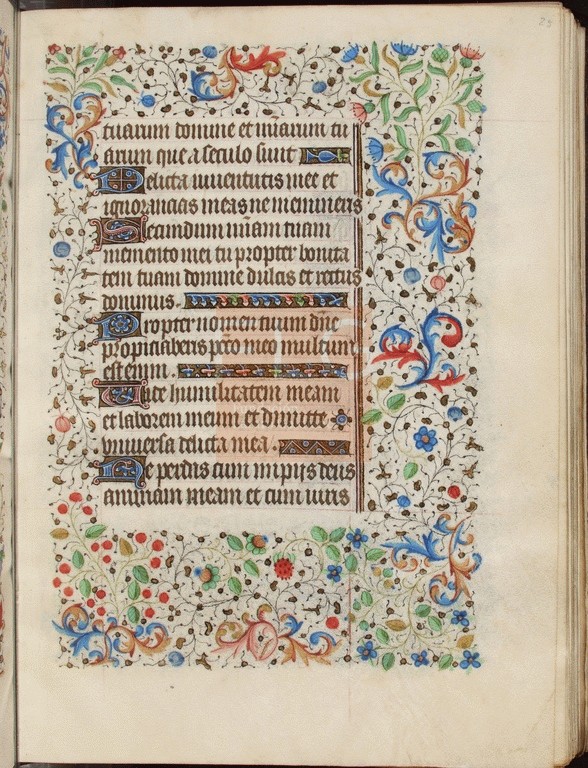 25
tuarum domine et miarum tu
arum que a seculo sunt
Delicta iuuentutis mee et
ignorancias meas ne memineris
Secundum miam tuam
memento mei tu propter bonita
tem tuam domine dulcis et rectus
dominus
Propter nomen tuum dne
propiciaberis pcco meo multum
est enim
Vide humilitatem meam
et laborem meum et dimitte
vniuersa delicta mea
Ne perdas cum impijs deus
animam meam et cum viris